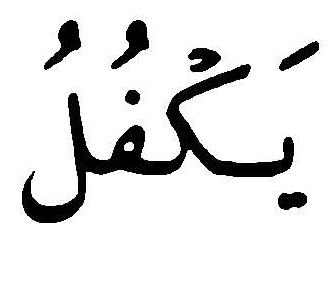 يَكْفُلُ